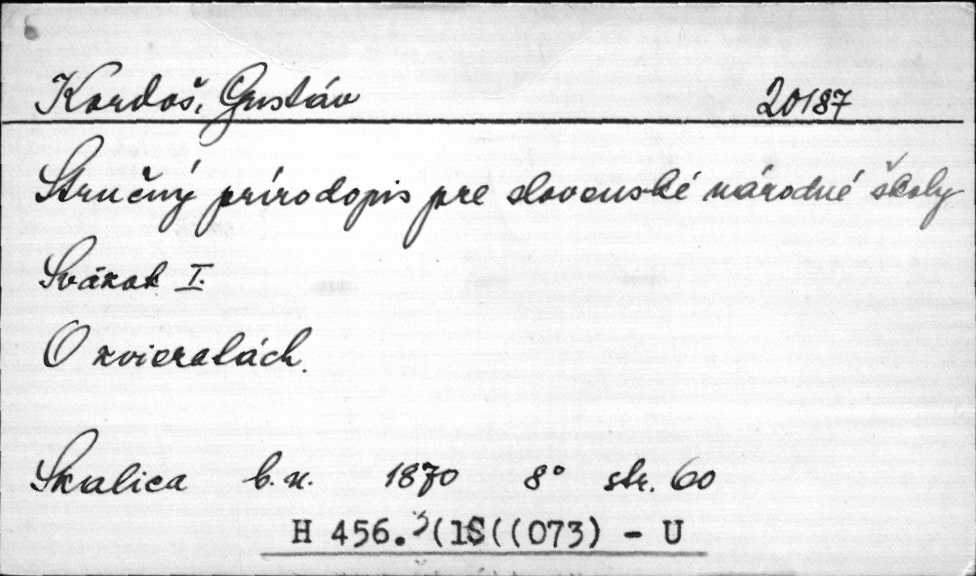 Kordoš, Gustáv 20187
Stručný prírodopis pre slovenské národné školy
Sväzok I.
O zvieratách.
Skalica b.n. 1870 8° str. 60
H 456.3(1S((073) - U